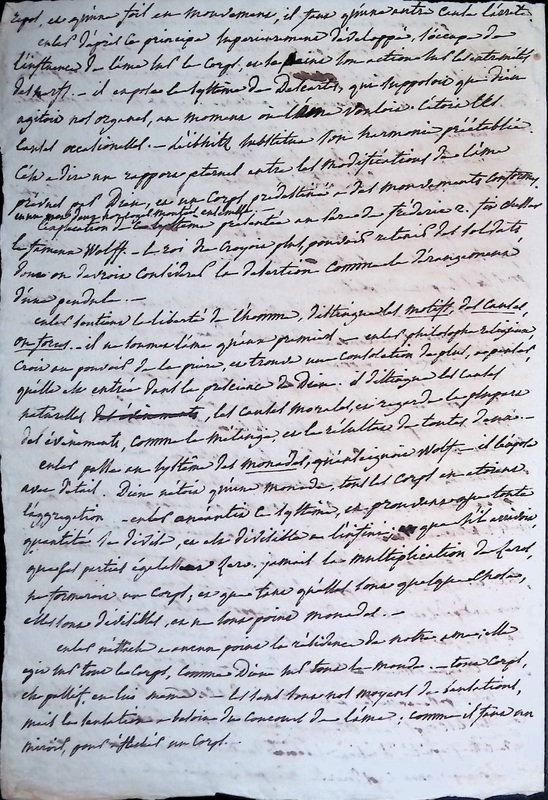 repos, et qu'une fois en mouvement, il faut qu'une autre cause l'arrête
euler d'après ce principe supérieurement développé,
l'influence de l'âme sur le corps, et son action sur les extremités
des nerfs. – il expose le systême de Descartes, qui supposoit que dieu
agitoit nos organes, au moment où l'âme vouloit. C'étoit les
causes occasionelles. – Leibnitz substitua son harmonie préétablie.
C'est à dire un rapport éternel entre les modifications de l'âme
prévues par Dieu, et un corps prédestiné à des mouvements conformes,
comme deux horloges montées ensemble
systême présenté au père de fréderic 2.
le fameux Wolff. – le roi ne croyant plus pouvoir retenir ses soldats
dont on devoit considérer la desertion comme le dérangement
d'une pendule. –
euler soutient la liberté de l'homme, distingue les motifs, des causes,
ou forces. – il ne donne l'âme qu'aux premiers – euler philosophe religieux
croit au pouvoir de la prière, et trouve une consolation de plus, à penser,
qu'elle est entrée dans la préscience de Dieu. il distingue les causes
naturelles des évènements, les causes morales, et regarde la plupart
des évènements, comme le mélange et le résultat de toutes deux. –
euler passe au systême des monades, qu'enseignoit Wolff. – il l'expose
avec détail. Dieu n'étoit qu'une monade, tous les corps en étoient
l'aggrégation – euler anéantit ce systême, en prouvant que toute
quantité se divise, et est divisible à l'infini; que
quelques parties égales à zero, jamais la multiplication de zeros,
ne formeroit un corps, et que tant qu'elles sont quelque chose,
elles sont divisibles, et ne sont point monades. –
euler n'attache à aucun point la résidence de notre âme; elle
agit sur tout le corps, comme Dieu sur tout le monde. – tout corps,
est passif en lui même – les sens sont nos moyens de sensations,
mais la sensation a besoin du concours de l'âme; comme il faut un
miroir, pour réfléchir un corps.